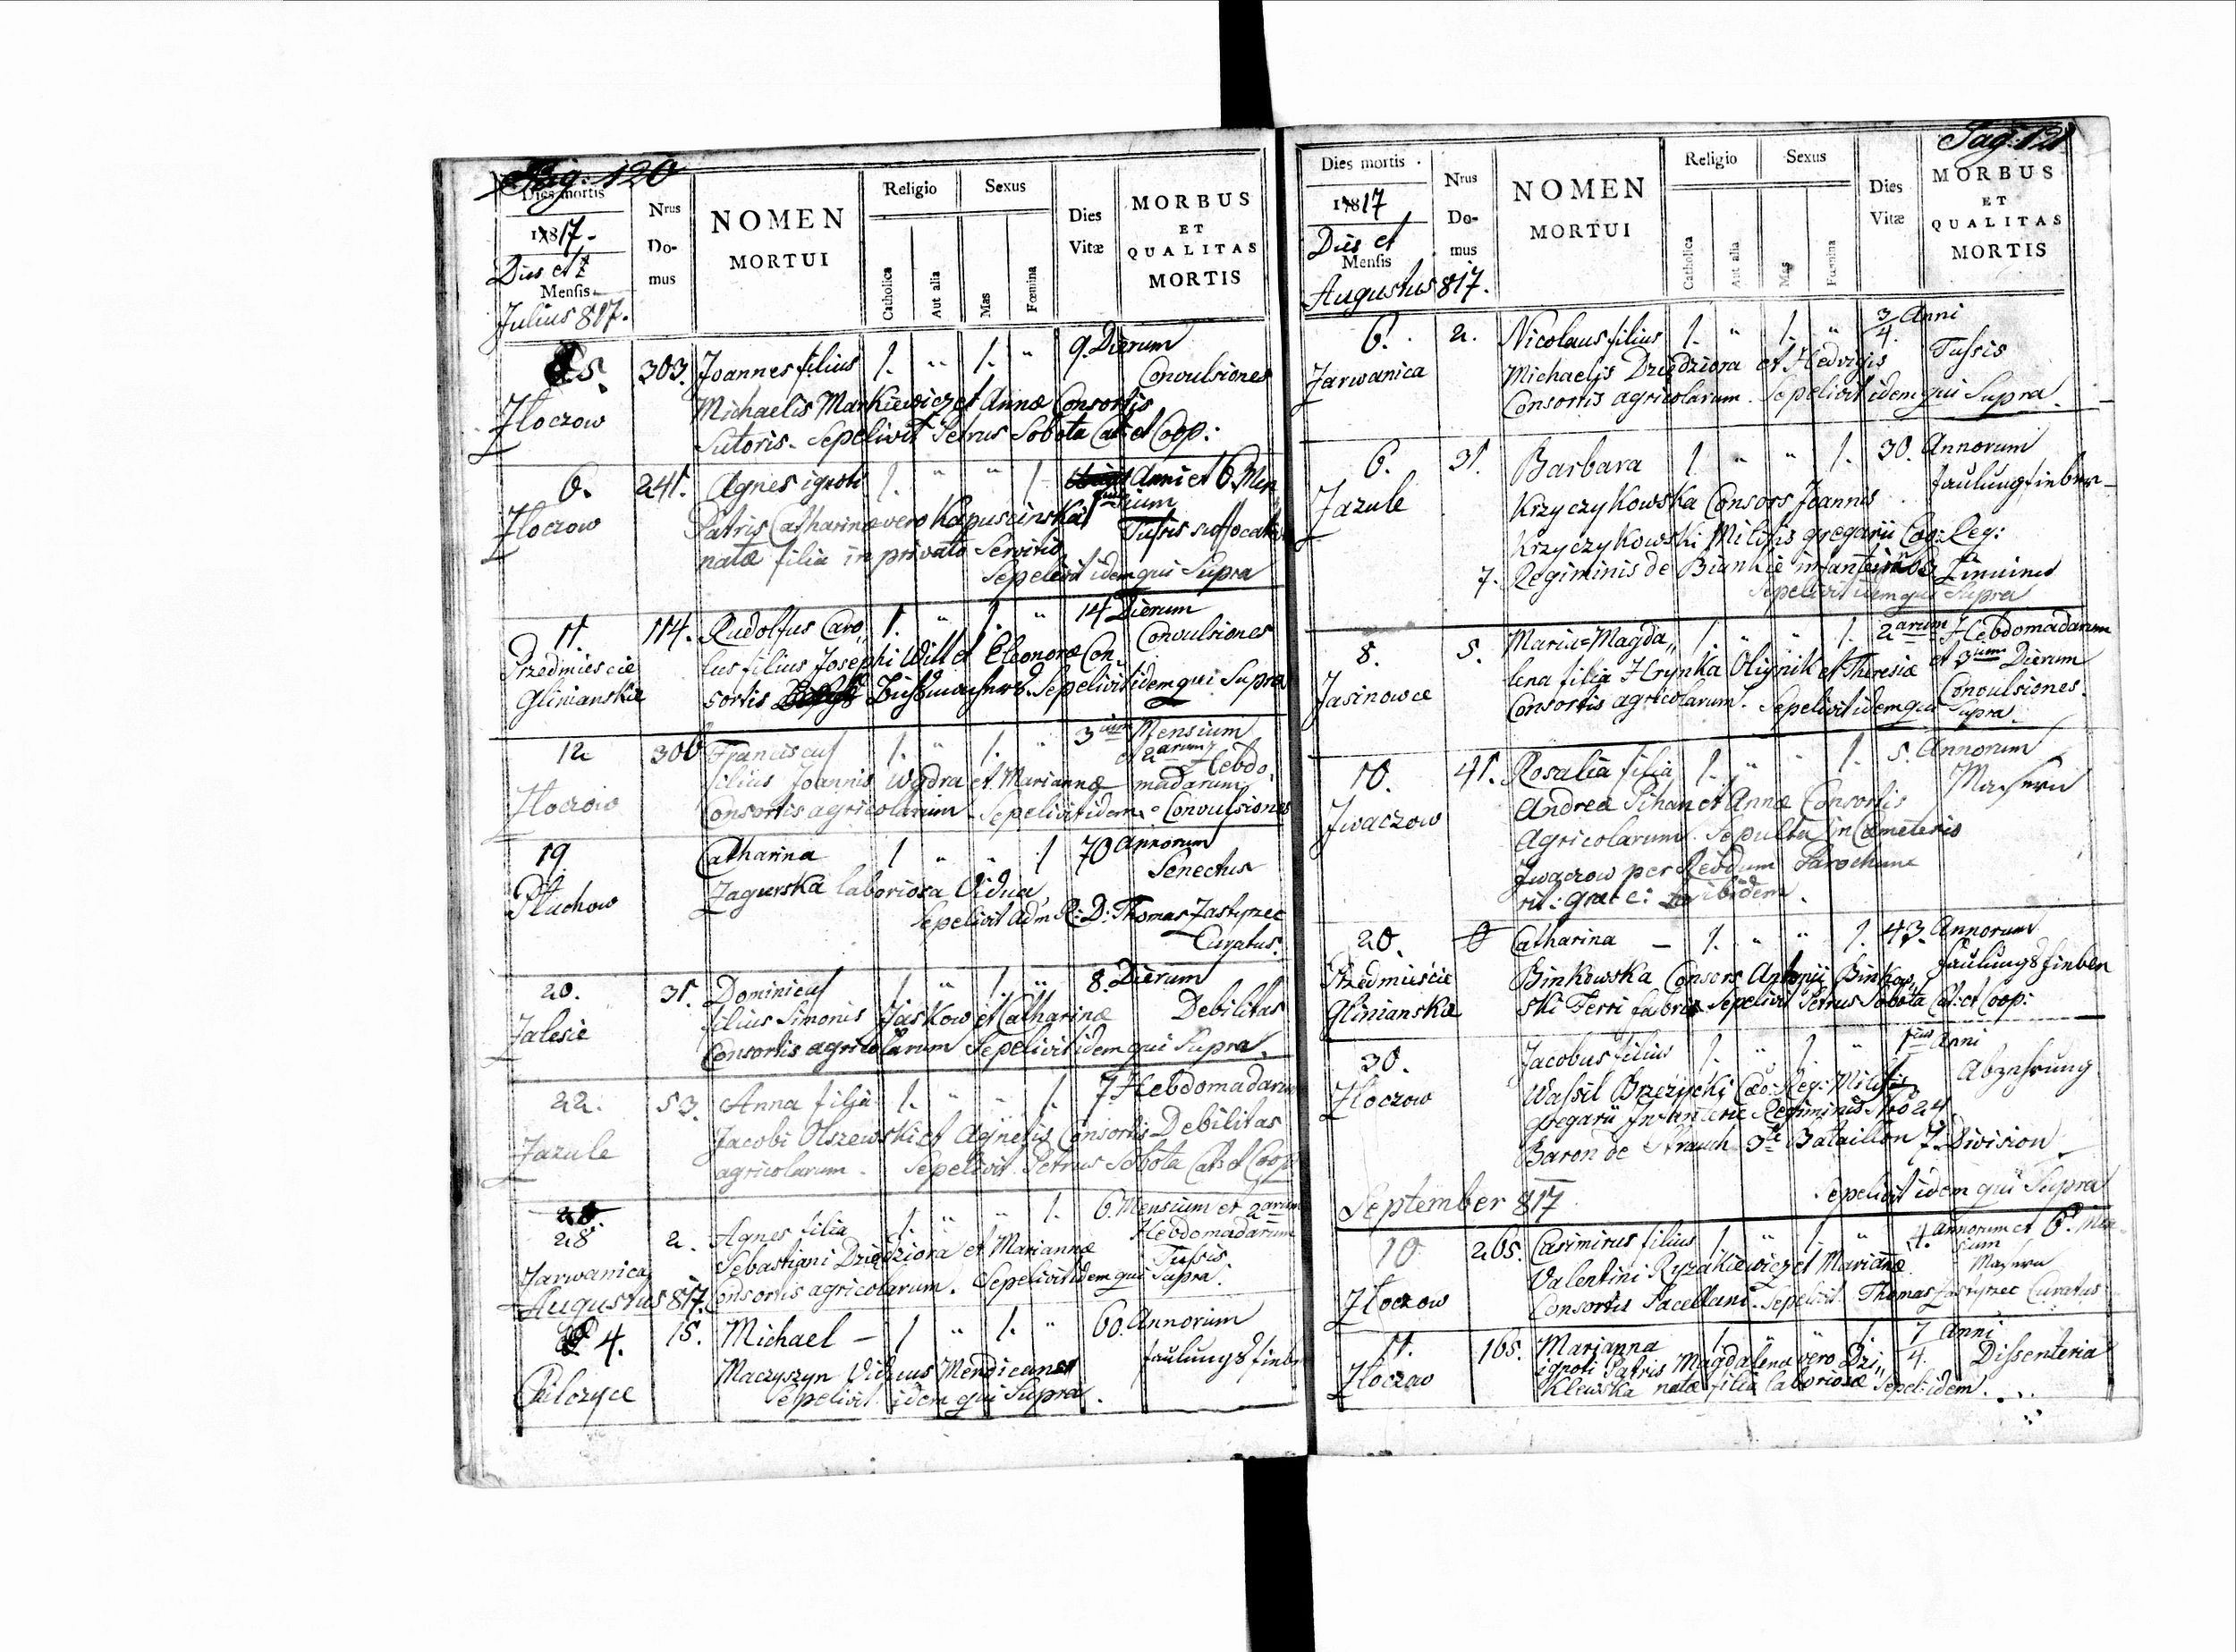 Pag: 120
Dies mortis
1817.
Dies et
Mensis
Julius 817.
Nrus
Do-
mus
NOMEN
MORTUI
Religio
Catholica
Aut alia
Sexus
Mas
Fœmina
Dies
Vitæ
MORBUS
ET
QUALITAS
MORTIS
5. 303. Joannes filius 1. " 1. " 9. Dierum
Convulsiones
Zloczow Michaelis Markiewicz et Annæ Consortis
Sutoris. Sepelivit Petrus Sobota Cat: et Coop:
6. 241. Agnes ignoti 1. " " 1. Anni et 6. Men
sium
Zloczow Patris Catharinæ vero Kapuscinska
Tussis suffocativa
natæ filia in privato Servitio
Sepelivit idem qui Supra
11. 114. Rudolfus Caro„ 1. " 1. " 14 Dierum
Convulsiones
Przedmieście lus filius Josephi Will et Eleonoræ Con„
Glinianskie sortis Sepelivit idem qui Supra
12 306 Franciscus 1. " 1. " 3ium Mensium
et 2arum Hebdo„
filius Joannis Wydra et Mariannæ madarum
Zloczow Consortis agricolarum Sepelivit idem Convulsiones
19. Catharina 1 " " 1 70 Annorum
Senectus
Pluchow Zagurska laboriosa Vidua
Sepelivit adm R: D: Thomas Zastyrzec
Curatus.
20. 31. Dominicus 1 " 1. " 8. Dierum
Zalesie filius Simonis Jaskow et Catharinæ Debilitas
Consortis agricolarum Sepelivit idem qui Supra.
22. 53. Anna filia 1. " " 1. 7. Hebdomadarum
Jacobi Olszewski et Agnetis Consortis Debilitas
Zazule agricolarum. Sepelivit Petrus Sobota Cat: et Coop
28 2. Agnes filia 1. " " 1. 6. Mensium et 2arum
Hebdomadarum
Sebastiani Dziędziora et Mariannæ Tussis
Zarwanica Consortis agricolarum. Sepelivit idem qui Supra.
Augustus 817.
4. 15. Michael – 1 " 1. " 60. Annorum
Faulungsfieber
Maczyszyn Viduus Mendicans
Chilczyce Sepelivit idem qui Supra.
Pag: 121
Dies mortis
1817
Dies et
Mensis
Augustus 817.
Nrus
Do-
mus
NOMEN
MORTUI
Religio
Catholica
Aut alia
Sexus
Mas
Fœmina
Dies
Vitæ
MORBUS
ET
QUALITAS
MORTIS
6. 2. Nicolaus filius 1. " 1. " 3/4 Anni
Tussis
Zarwanica Michaelis Dziędziora et Hedvigis
Consortis agricolarum. Sepelivit idem qui Supra.
6. 31. Barbara 1. " " 1. 30. Annorum
Faulungsfieber
Zazule Krzyczykowska Consors Joannis
Krzyczykowski Militis gregarii Cæs: Reg:
7. Regiminis de Bianchi
Sepelivit idem qui Supra
8. 5. Maria=Magda„ 1. " " 1. 2arum Hebdomadarum
et 3ium Dierum
Jasinowce lena filia Hrynka Oliynik et Theresiæ Convulsiones.
Consortis agricolarum. Sepelivit idem qui Supra.
10. 41. Rosalia filia 1. " " 1. 5. Annorum
Masern
Andrea Pihan et Annæ Consortis
Jwaczow Agricolarum. Sepulta in Cæmeteris
Jwaczow per Revdum Parochum
rit: græc: ibidem.
20. 0 Catharina – 1. " " 1. 43. Annorum
Faulungsfieber
Przedmieście Binkowska Consors Antonii Binkow„
Glinianskie ski Ferri fabris Sepelivit Petrus Sobota Cat: et Coop:
30. Jacobus filius 1. " 1. " 1ius Anni
Abzehrung
Zloczow Wassil Brzezycki Cæs: Reg: Militis
gregarii Infanterie Regiminis Nro 24.
Baron de Strauch 3te Bataillon 7. Division
Sepelivit idem qui Supra
September 817
10 265. Casimirus filius 1 " 1. " 4. Annorum et 6. Men
sium
Masern
Valentini Ryzakiewicz et Mariannæ
Zloczow Consortis Sacellani. Sepelivit Thomas Zastyrzec Curatus
11. 165. Marianna 1. " " 1. 7/4 Anni
Dissenteria
Zloczow ignoti Patris Magdalena vero Dzi„
Klewska natæ filia laboriosæ Sepel: idem.